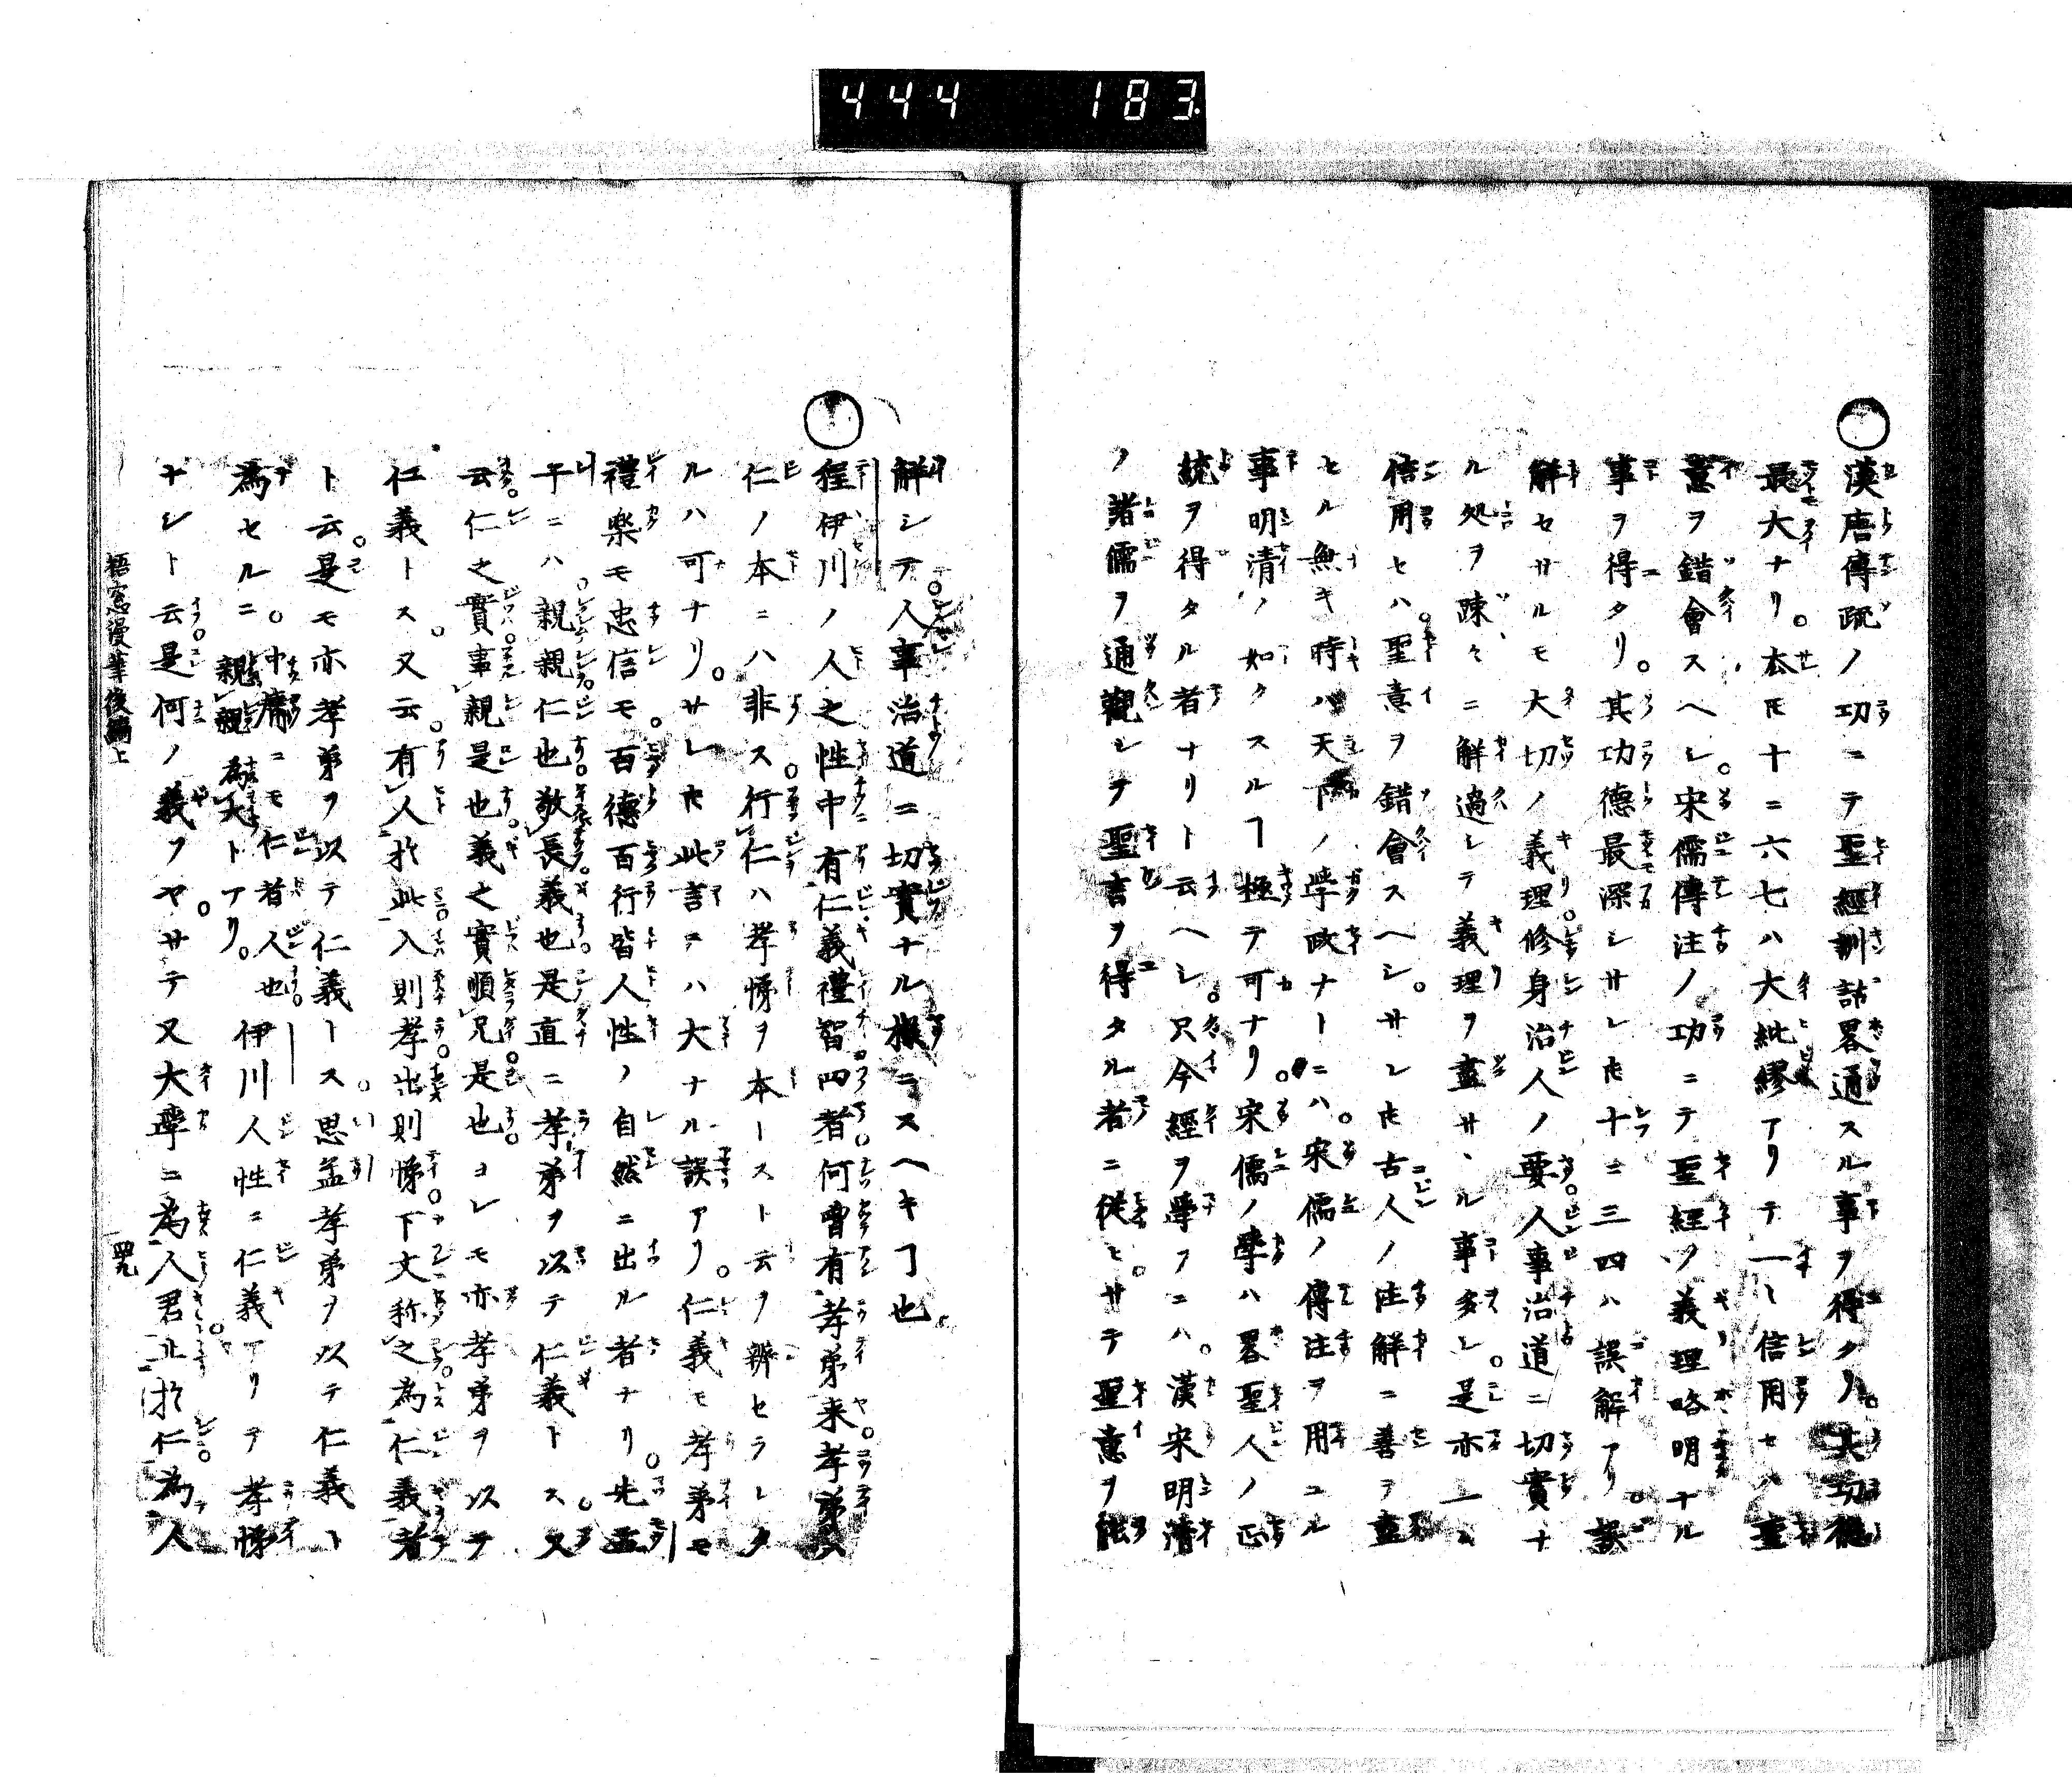 444 183
漢唐傳疏ノ功ニテ聖經訓詁畧通スル事ヲ得タリ。其功德
最大ナリ。太モ十ニ六七ハ大紕繆アリテ一〻信用セハ聖
意ヲ錯會スヘシ。宋儒傳注ノ功ニテ聖經ノ義理略明ナル
事ヲ得タリ。其功德最深シサレ𪜈十ニ三四ハ誤解アリ。誤
解セサルモ大切ノ義理修身治人ノ要人事治道ニ切實ナ
ル処ヲ疎々ニ解過シテ義理ヲ盡サヽル事多シ。是亦一〻
信用セハ。聖意ヲ錯會スヘシ。サレ𪜈古人ノ注解ニ善ヲ盡
セル無キ時ハ天下ノ学政ナトニハ。宋儒ノ傳注ヲ用ユル
事明清ノ如クスルヿ極テ可ナリ。宋儒ノ學ハ畧聖人ノ正
統ヲ得タル者ナリト云ヘシ。只今經ヲ學フニハ。漢宋明清
ノ諸儒ヲ通觀シテ聖書ヲ得タル者ニ従ヒ。サテ聖意ヲ能
解シテ。人事治道ニ切實ナル様ニスヘキヿ也。
程伊川ノ人之性中有仁義禮智四者何曾有孝弟来孝弟ハ
仁ノ本ニハ非ス。行仁ハ孝悌ヲ本ースト云ヲ辨セラレタ
ルハ可ナリ。サレ𪜈此言ヲハ大ナル誤アリ。仁義モ孝弟モ
禮楽モ忠信モ。百德百行皆人性ノ自然ニ出ル者ナリ。先孟
子ニハ。親親仁也。敬長義也是直ニ孝弟ヲ以テ仁義トス。又
云。仁之實事親是也義之實順兄是也。コレモ亦孝弟ヲ以テ
仁義トス。又云。有人於此入則孝出則悌下文称之為仁義者
ト云。是モ亦孝弟ヲ以テ仁義ース。思孟孝弟ヲ以テ仁義ト
為セルニ。中庸ニモ仁者人也親親為大トアリ。伊川人性ニ仁義アリテ孝悌
ナシト云。是何ノ義ソヤ。サテ又大學ニ為人君止於仁為人
梧窓漫筆後編上
四九